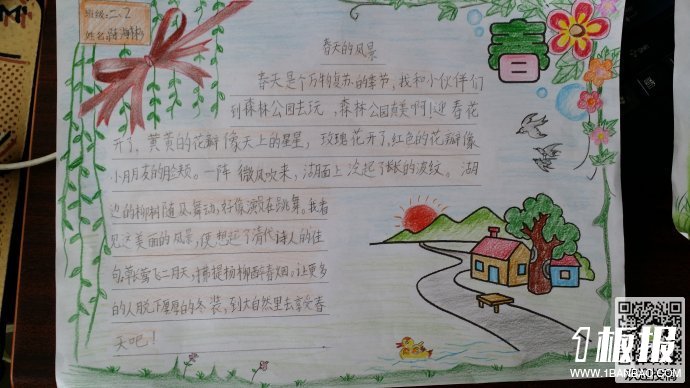 班级:二、2
姓名:
春天的风景
春
春天是个万物复苏的季节,我和小伙伴们
到森林公园去玩,森林公园真美啊!迎春花
开了,黄黄的花瓣像天上的星星,玫瑰花开了,红色的花瓣像
小朋友的脸颊。一阵微风吹来,湖面上泛起了长长的波纹。湖
边的柳树随风舞动,好像演员在跳舞。我看
见这美丽的风景,便想起了清代诗人的佳
句:草长莺飞二月天,拂提杨柳醉春烟。让更多
的人脱下厚厚的冬装,到大自然里去享受春
天吧!
1板报
WWW.1BANBAO.COM